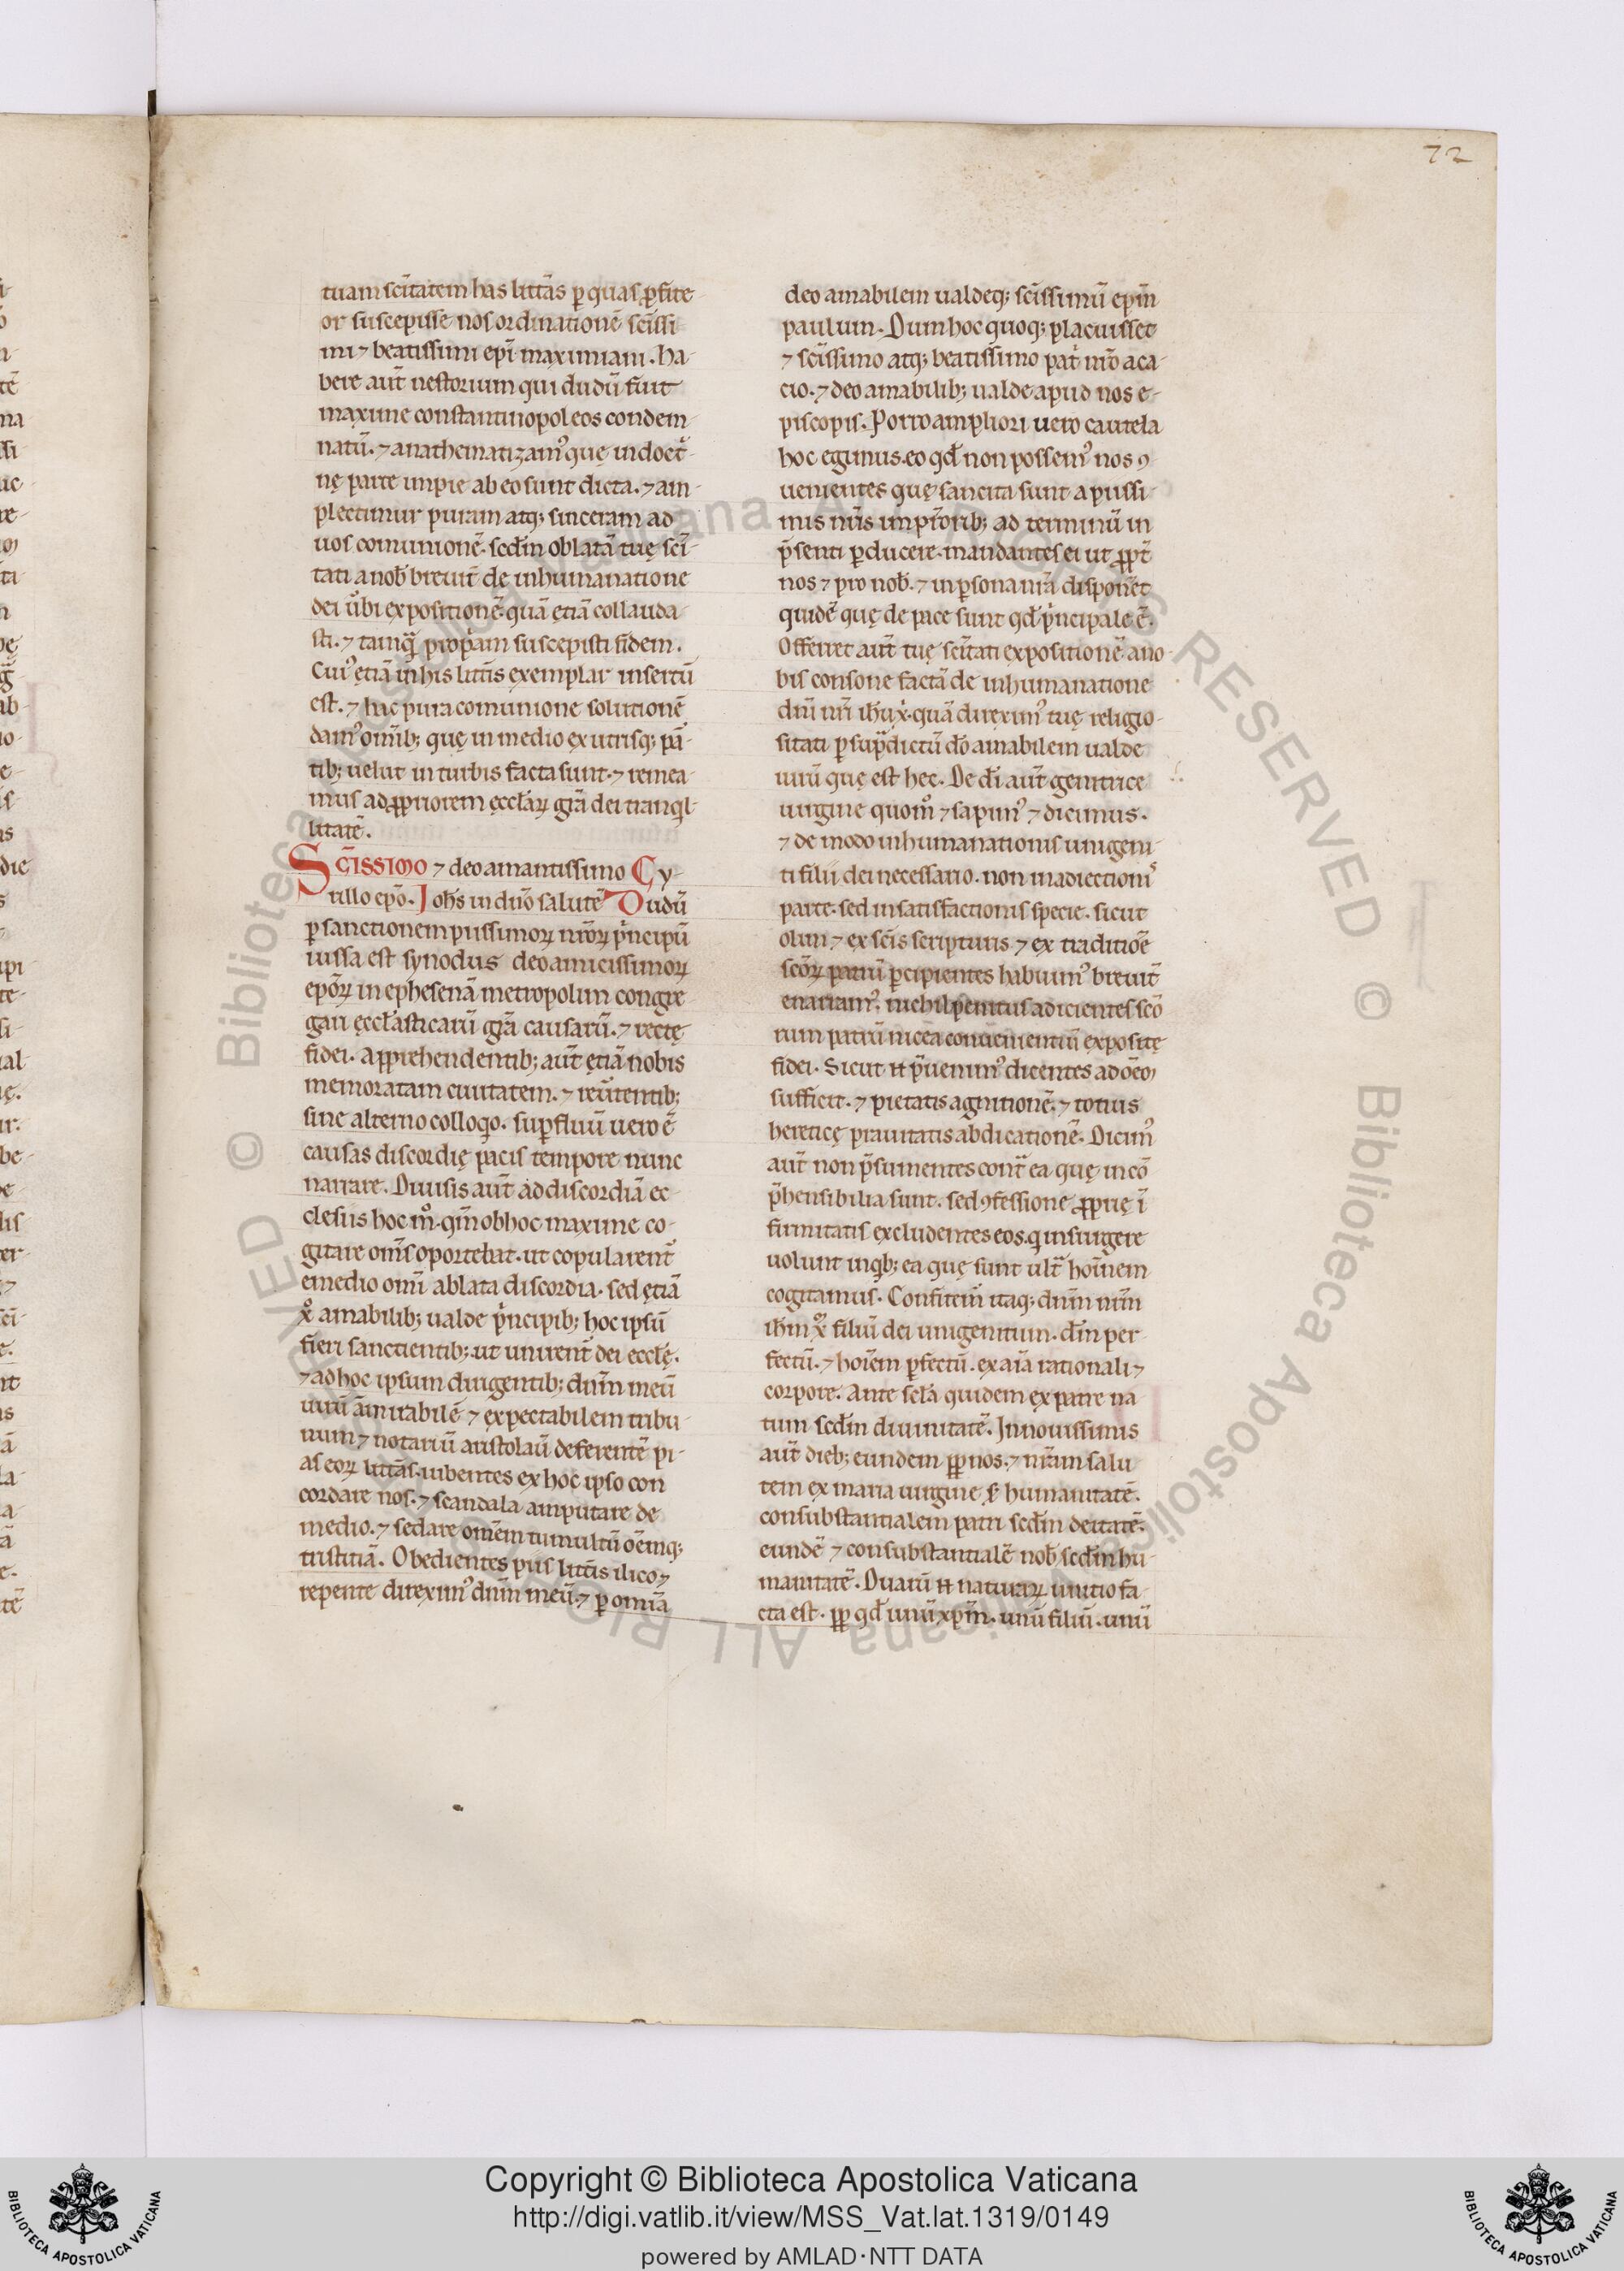 72
tuam sc̄itatem has litt̄as ꝑ quas ꝓfite-
or suscepisse nos ordinationē sc̄issi
mi ⁊ beatissimi ep̄i maximiani. ha-
bere aut̄ nestorium qui dudū fuit
maxime constantinopoleos condem-
natū. ⁊ anathematizam᾽ quę in doct̄-
nę parte impie ab eo sunt dicta. ⁊ am-
plectimur puram atq; sinceram ad
uos comunionē. sedm̄ oblatā tuę sc̄i-
tati a nob̄ breuit̄ de inhumanatione
dei ūbi expositionē. quā ętiā collauda-
sti. ⁊ tamq̄ propam suscepisti fidem.
Cui᾽ ętiā in his litt̄is exemplar insertū
est. ⁊ hac pura comunione solutionē
dam᾽ om̄ib; quę in medio ex utrisq; pā-
tib; uelut in turbis facta sunt. ⁊ remea-
mus ad ꝓpriorem ęcclaꝝ gr̄a dei tranql-
litatē.
Sc̄issimo ⁊ deo amantissimo Cy-
rillo ep̄o. Ioh̄s in dn̄o salutē Dudū
ꝑ sanctionem piissimoꝝ nr̄oꝝ pncipū
iussa est synodus deo amicissimoꝝ
ep̄oꝝ in ephesenā metropolim congre
gari ęccl̄asticarū gr̄a causarū. ⁊ rectę
fidei. apprehendentib; aut̄ ętiā nobis
memoratam ciuitatem. ⁊ reūtentib;
sine alterno colloqo. suꝑfluū uero ē
causas discordię pacis tempore nunc
narrare. Diuisis aut̄ ad discordiā ec-
clesiis hoc m°. qm̄ ob hoc maxime co-
gitare om̄s oportebat. ut copularent᾽
e medio om̄i ablata discordia. sed ętiā
x° amabilib; ualde pncipib; hoc ipsū
fieri sanctientib; ut unirent᾽ dei ecclę.
⁊ ad hoc ipsum dirigentib; dnm̄ meū
uirū āmirabilē ⁊ expectabilem tribu-
num ⁊ notariū aristolaū deferentē pi-
as eoꝝ litt̄as. iubentes ex hoc ipso con
cordare nos. ⁊ scandala amputare de
medio. ⁊ sedare om̄em tumultū oēmq;
tristitiā. Obedientes piis litt̄is ilico ⁊
repente direxim᾽ dnm̄ meū. ⁊ ꝑ omīa
deo amabilem ualdeq; sc̄issimū ep̄m
paulum. Dum hoc quoq; placuisset
⁊ sc̄issimo atq; beatissimo pat̄ nr̄o aca-
cio. ⁊ deo amabilib; ualde apud nos e-
piscopis. Porro ampliori uero cautela
hoc egimus. eo qd̄ non possem᾽ nos ꝯ
uenientes quę sancita sunt a piissi-
mis nr̄is imp̄torib; ad terminū in
p̄senti ꝑducere. mandantes ei ut ꝓpt̄
nos ⁊ pro nob̄. ⁊ in ꝑsona nr̄a disponēt
quidē quę de pace sunt qd̄ pncipale ē.
Offerret aut̄ tuę sc̄itati expositionē a no
bis consone factā de inhumanatione
dn̄i nr̄i ih̄u x̄. quā direxim᾽ tuę religio-
sitati ꝑ sup̄dictū dō amabilem ualde
uirū quę est hec. De dī aut̄ genitrice
uirgine quom° ⁊ sapim᾽ ⁊ dicimus.
⁊ de modo inhumanationis unigeni-
ti filii dei necessario. non in adiectionis
parte. sed in satisfactionis specie. sicut
olim ⁊ ex sc̄is scripturis ⁊ ex traditiōe
sc̄oꝝ patrū ꝑcipientes habuim᾽ breuit̄
enarram᾽. nichil penitus adicientes sc̄o
rum patrū nicea conuenientiū expositę
fidei. Sicut n̄ p̄uenim᾽ dicentes ad oēꝯ
sufficit. ⁊ pietatis agnitionē. ⁊ totius
hereticę prauitatis abdicationē. Dicim᾽
aut̄ non p̄sumentes cont̄ ea quę incō
p̄hensibilia sunt. sed ꝯfessione ꝓprię ī
firmitatis excludentes eos. q insurgere
uolunt inqb; ea quę sunt ult̄ hoīnem
cogitamus. Confitem᾽ itaq; dnm̄ nr̄m
ih̄m x̄ filiū dei unigenitum. dm̄ per-
fectū. ⁊ hoīem ꝑfectū. ex aīa rationali ⁊
corpore. Ante scl̄a quidem ex patre na
tum sedm̄ diuinitatē. In nouissimis
aut̄ dieb; eundem ꝓp nos. ⁊ nr̄am salu
tem ex maria uirgine s̄ humanitatē.
consubstantialem patri sedm̄ deitatē.
eundē ⁊ consubstantialē nob̄ sedm̄ hu-
manitatē. Duarū n̄ naturaꝝ unitio fa-
cta est. ꝓp qd̄ unū xp̄m. unū filiū. unū
Copyright © Biblioteca Apostolica Vaticana
http://digi.vatlib.it/view/MSS_Vat.lat.1319/0149
powered by AMLAD·NTT DATA